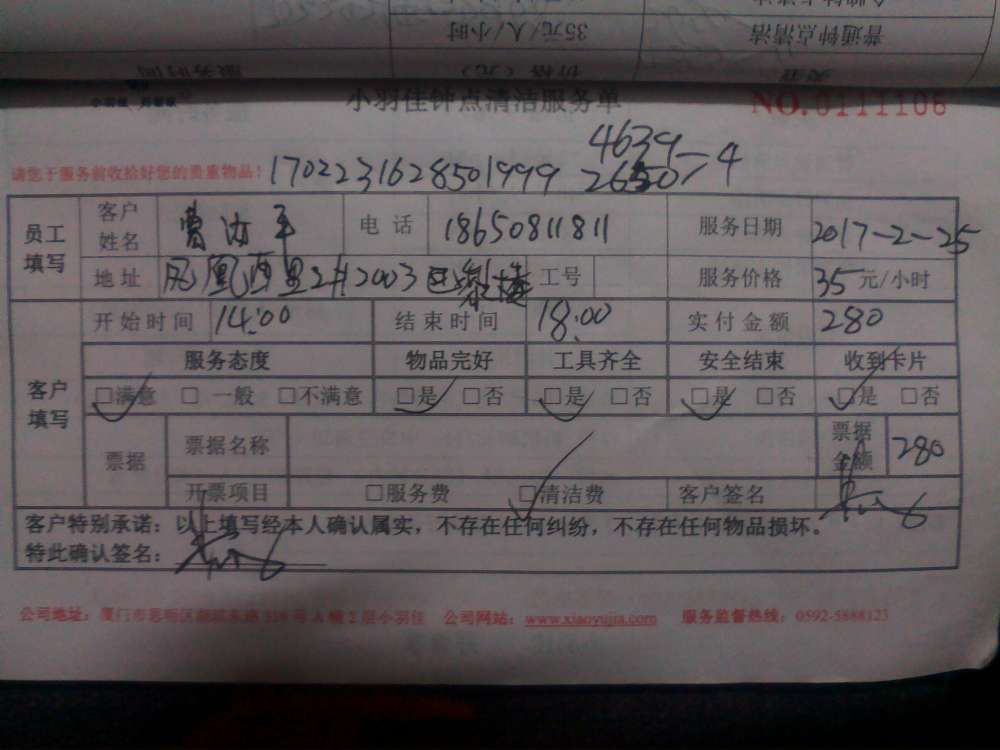 普通钟点清洁 35元/人/小时
类型 价格（元） 服务时间
小羽佳钟点清洁服务单 NO.0111106
4639
请您于服务前收拾好您的贵重物品！ 1702231628501999 2650 > 4
员工填写 客户姓名 电话 18650811811 服务日期 2017-2-25
地址 凤凰西里2#2003 工号 服务价格 35元/小时
客户填写 开始时间 14:00 结束时间 18:00 实付金额 280
服务态度 物品完好 工具齐全 安全结束 收到卡片
□满意 □一般 □不满意 □是 □否 □是 □否 □是 □否 □是 □否
票据 票据名称 票据金额 280
开票项目 □服务费 □清洁费 客户签名
客户特别承诺：以上填写经本人确认属实，不存在任何纠纷，不存在任何物品损坏。
特此确认签名：
公司地址：厦门市思明区 A幢2层小羽佳 公司网站：www.xiaoyujia.com 服务监督热线：0592-5888123